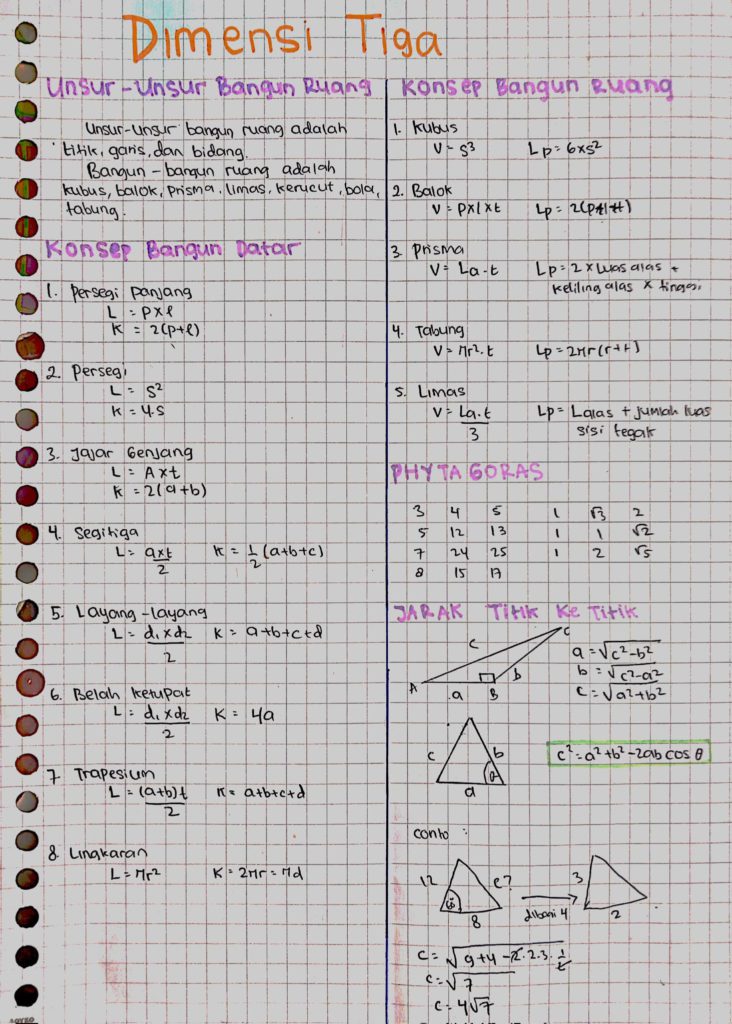 Dimensi Tiga
Unsur-Unsur Bangun Ruang
Unsur-unsur bangun ruang adalah
titik, garis, dan bidang.
Bangun-bangun ruang adalah
kubus, balok, prisma, limas, kerucut, bola,
tabung.
Konsep Bangun Datar
1. Persegi panjang
L = p x l
K = 2(p+l)
2. Persegi
L = S²
K = 4.S
3. Jajar Genjang
L = A x t
K = 2(a+b)
4. Segitiga
L = axt/2 K = 1/2 (a+b+c)
5. Layang-layang
L = d₁ x d₂/2 K = a+b+c+d
6. Belah ketupat
L = d₁ x d₂/2 K = 4a
7 Trapesium
L = (a+b)t/2 K = a+b+c+d
8 Lingkaran
L = πr² K = 2πr = πd
Konsep Bangun Ruang
1. Kubus
V = S³ Lp = 6xs²
2. Balok
V = p x l x t
3. Prisma
V = La.t Lp = 2 x luas alas +
keliling alas x tinggi
4. Tabung
V = πr².t Lp = 2πr(r+t)
5. Limas
V = La.t/3 Lp = Lalas + jumlah luas
sisi tegak
PHYTAGORAS
3 4 5 1 √3 2
5 12 13 1 1 √2
7 24 25 1 2 √5
8 15 17
JARAK Titik Ke Titik
A B C
a b c
a = √c²-b²
b = √c²-a²
c = √a²+b²
c b a θ
c² = a²+b²-2ab cos θ
conto :
12 c? 8
dibagi 4
3 2
c = √9+4-2.2.3.1/2
c = √7
c = 4√7